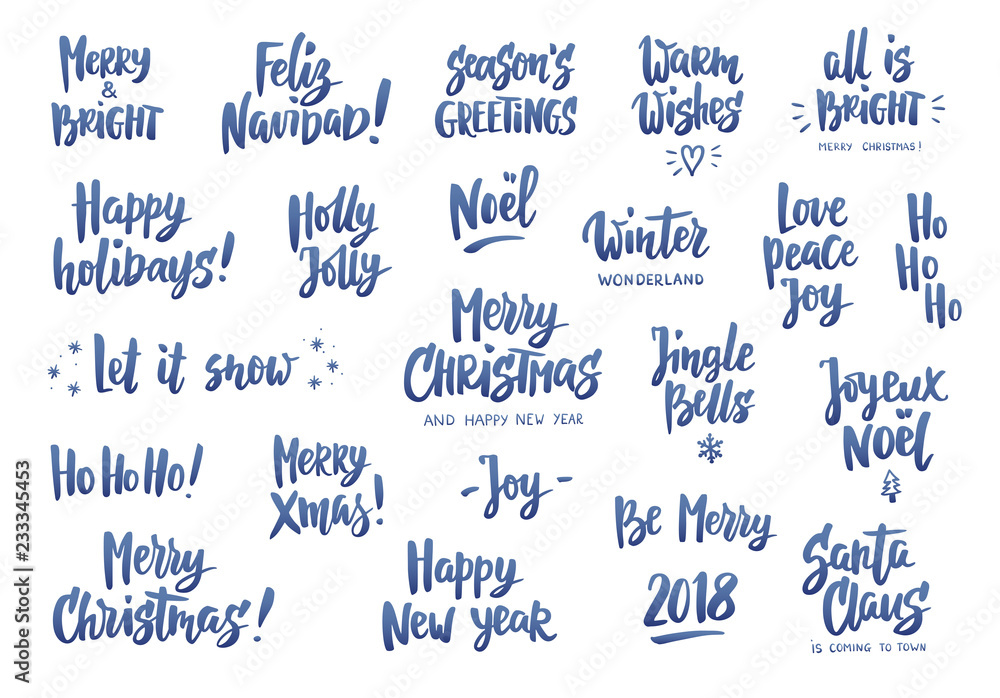 Merry
&
Bright
Feliz
Navidad!
Season's
Greetings
Warm
Wishes
all is
Bright
MERRY CHRISTMAS!
Happy
holidays!
Holly
Jolly
Noël
Winter
WONDERLAND
Love
peace
Joy
Ho
Ho
Ho
Let it snow
Merry
Christmas
AND HAPPY NEW YEAR
Jingle
Bells
Joyeux
Noël
Ho Ho Ho!
Merry
Xmas!
- Joy -
Be Merry
Merry
Christmas!
Happy
New year
2018
Santa
Claus
IS COMING TO TOWN
Adobe Stock | #233345453